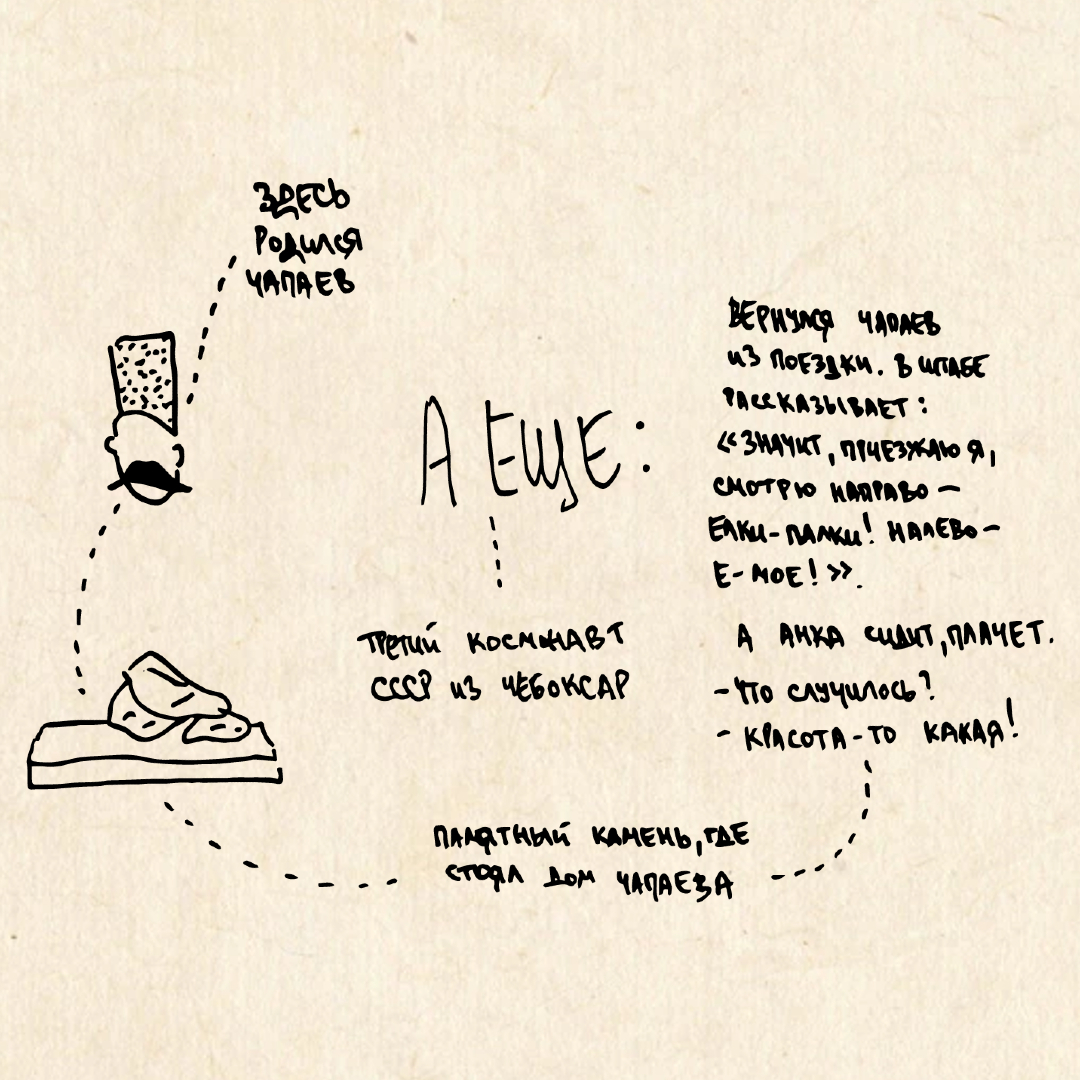 ЗДЕСЬ
РОДИЛСЯ
ЧАПАЕВ
А ЕЩЕ:
ТРЕТИЙ КОСМОНАВТ
СССР ИЗ ЧЕБОКСАР
ВЕРНУЛСЯ ЧАПАЕВ
ИЗ ПОЕЗДКИ. В ШТАБЕ
РАССКАЗЫВАЕТ:
«ЗНАЧИТ, ПРИЕЗЖАЮ Я,
СМОТРЮ НАПРАВО –
ЕЛКИ-ПАЛКИ! НАЛЕВО –
Е-МОЕ!».
А АНКА СИДИТ, ПЛАЧЕТ.
- ЧТО СЛУЧИЛОСЬ?
- КРАСОТА-ТО КАКАЯ!
ПАМЯТНЫЙ КАМЕНЬ, ГДЕ
СТОЯЛ ДОМ ЧАПАЕВА